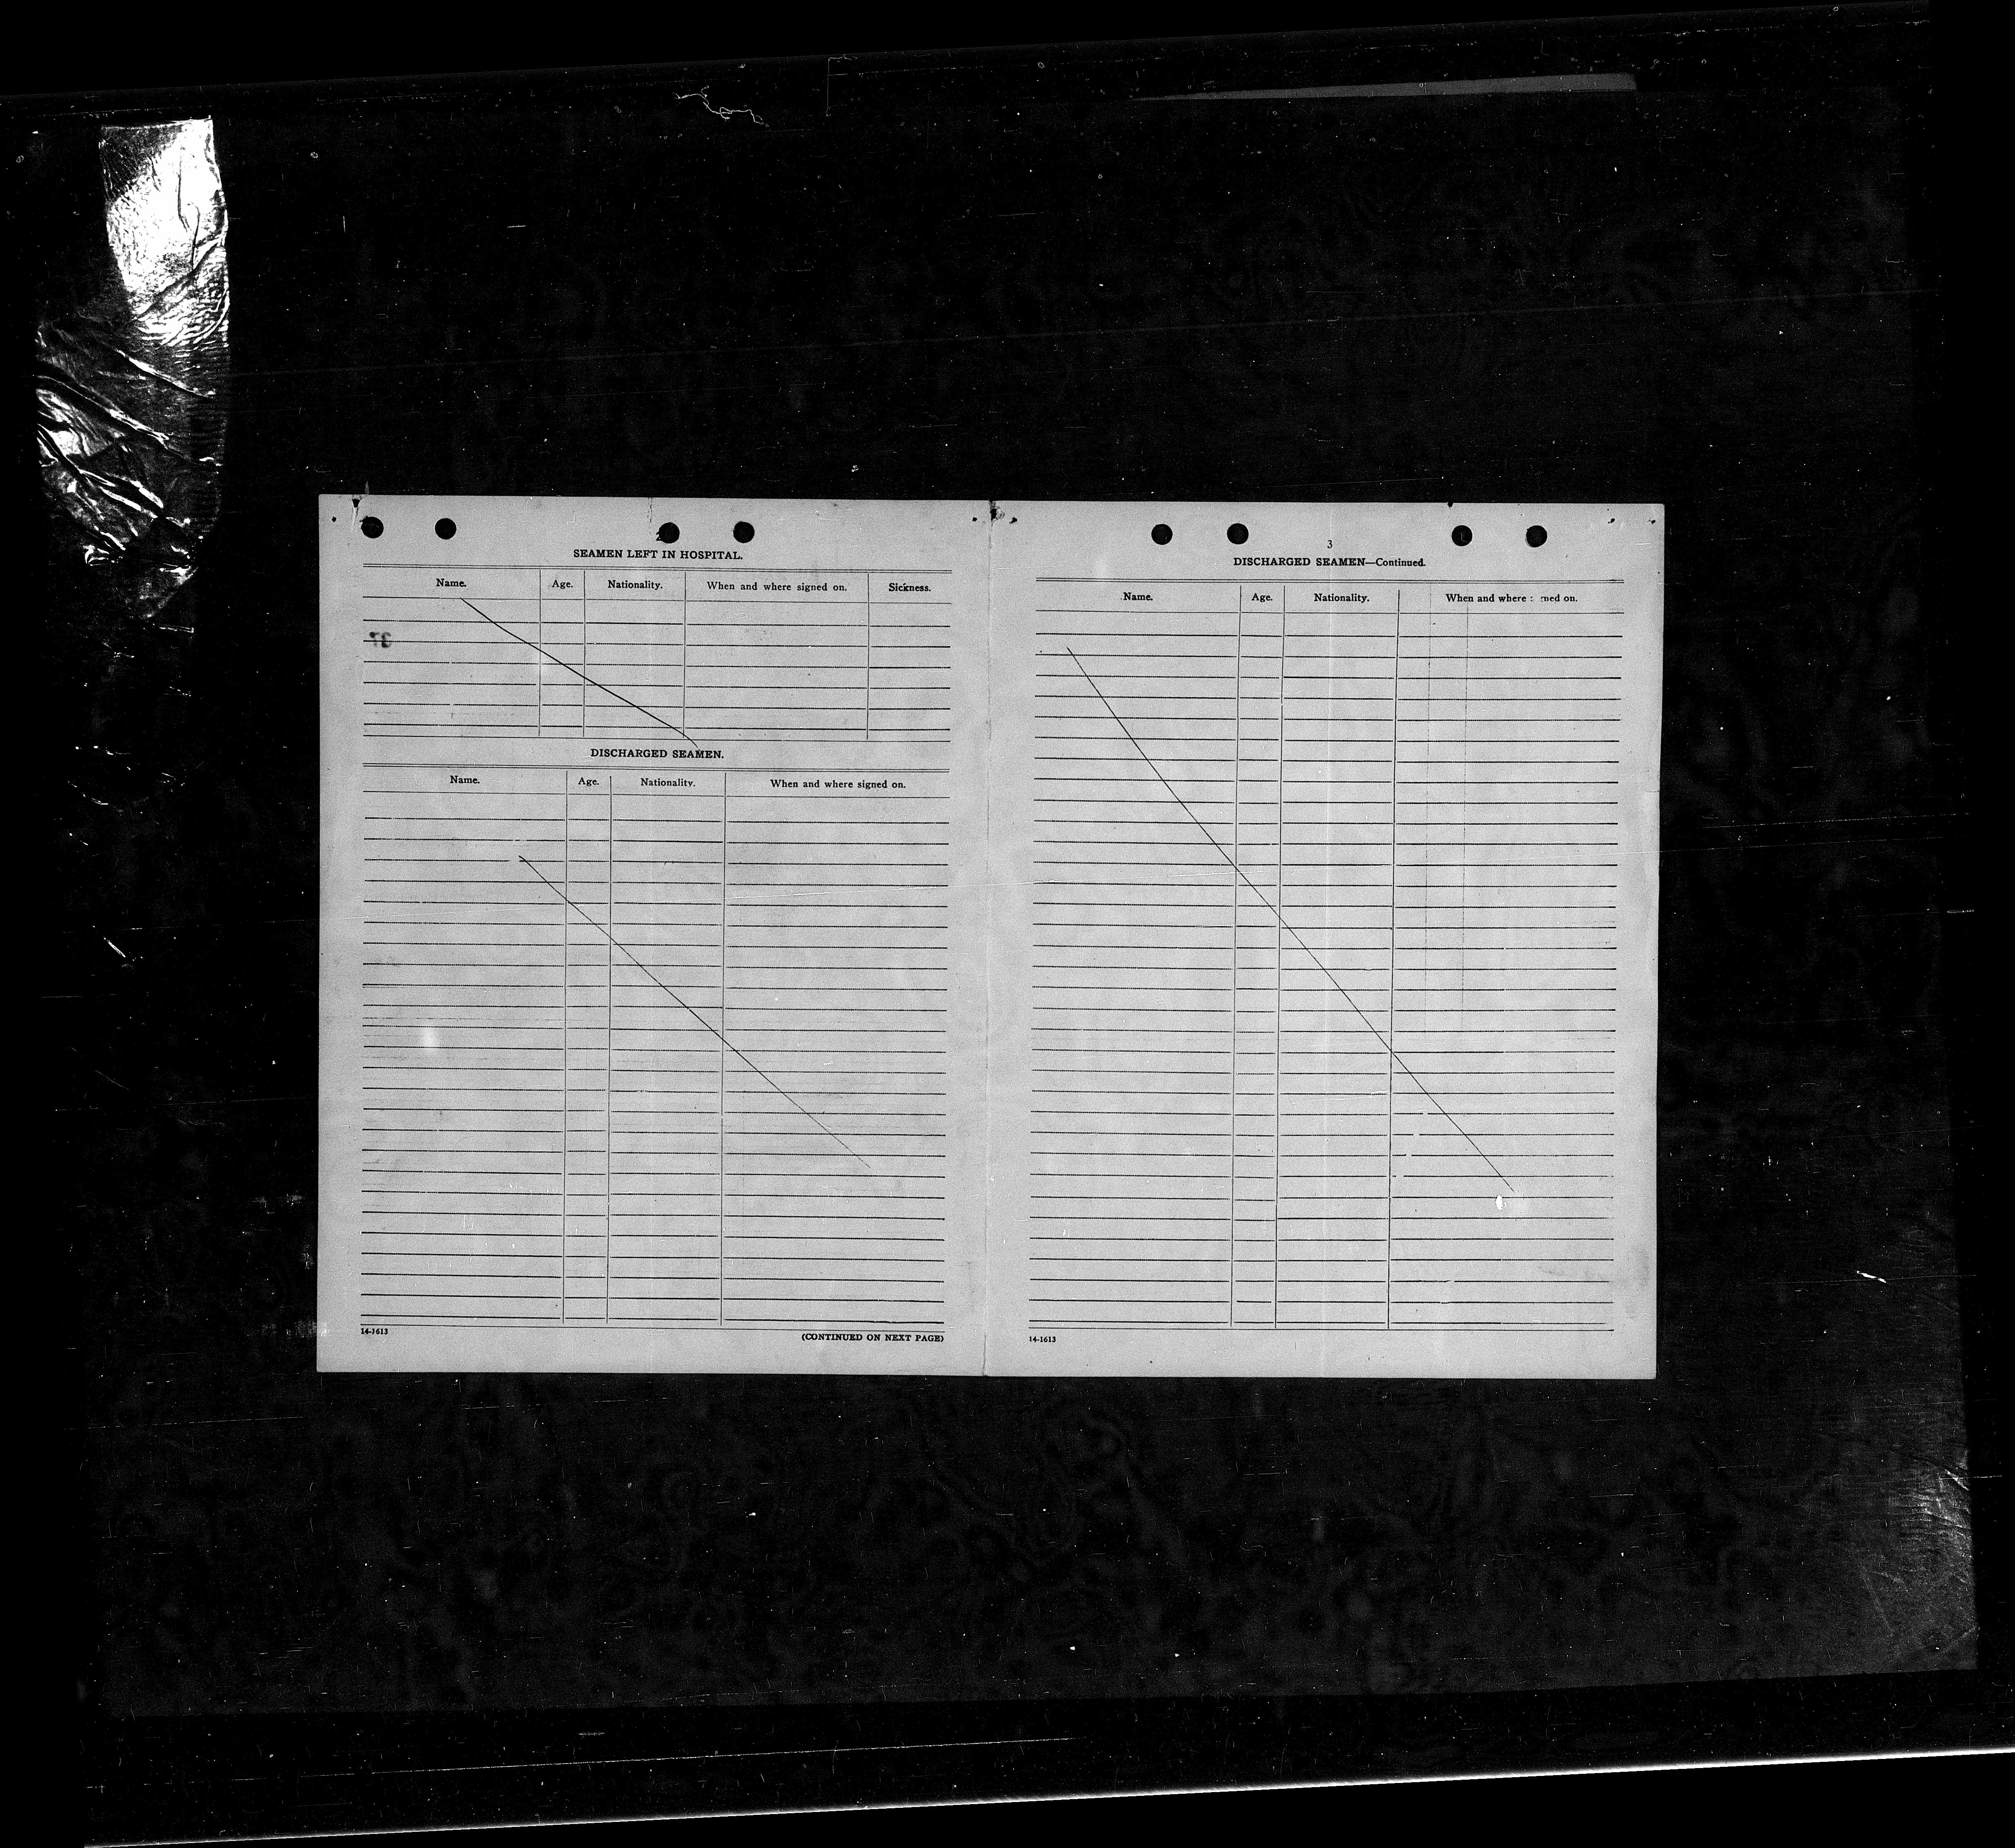 2
SEAMEN LEFT IN HOSPITAL.
Name. Age. Nationality. When and where signed on. Sickness.
DISCHARGED SEAMEN.
Name. Age. Nationality. When and where signed on.
14-1613
(CONTINUED ON NEXT PAGE)
3
DISCHARGED SEAMEN—Continued.
Name. Age. Nationality. When and where ned on.
14-1613